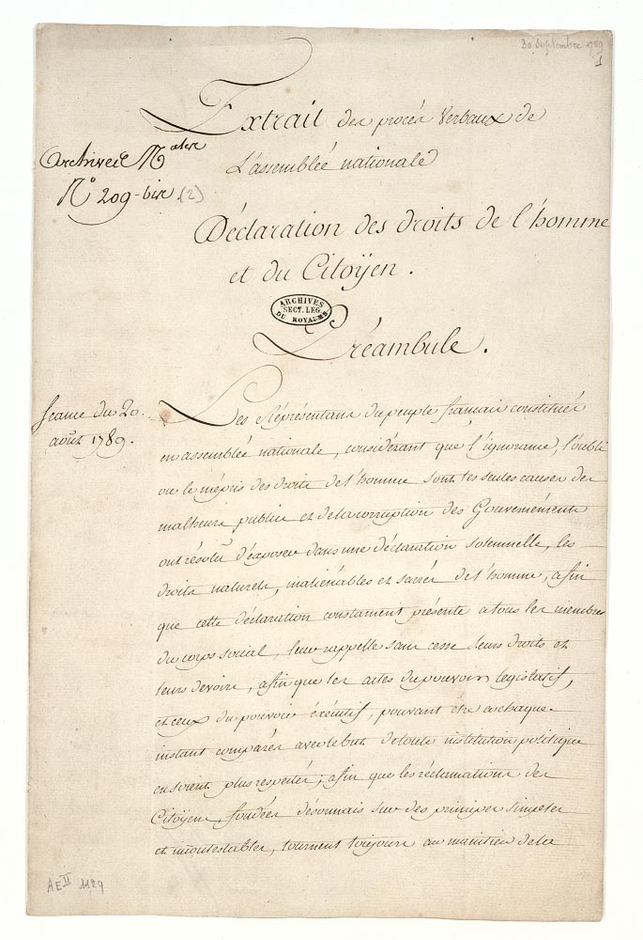 30 Septembre 1789
1
Extrait des procès Verbaux de
L'assemblée nationale
Archives Nales
N° 209-bis (2)
Déclaration des droits de l'homme
et du Citoÿen.
ARCHIVES
SECT. LEG.
DU ROYAUME
Préambule.
Seance du 20.
août 1789.
Les Réprésentans du peuple francais constitués
en assemblée nationale, considérant que l'ignorance, l'oubli
ou le mépris des droits de l'homme sont les seules causes des
malheurs publics et de la corruption des Gouvernements
ont résolu d'exposer dans une déclaration solemnelle, les
droits naturels, inaliénables et sacrés de l'homme, afin
que cette déclaration constament présente a tous les membres
du corps social, leur rappelle sans cesse leurs droits et
leurs devoirs, afin que les actes du pouvoir législatif,
et ceux du pouvoir éxécutif, pouvant être a chaque
instant comparés avec le but de toute institution politique
en soient plus respectés; afin que les réclamations des
Citoÿens, fondées désormais sur des principes simples
et incontestables, tournent toujours au maintien de la
AE II 1129